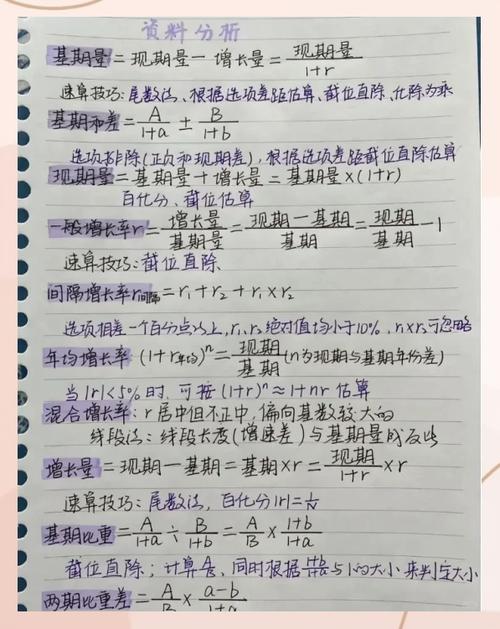 资料分析
基期量=现期量-增长量=现期量/1+r
速算技巧:尾数法、根据选项差距估算、截位直除、化除为乘
基期和差=A/1+a±B/1+b
选项排除(正负和现期差),根据选项差距截位直除估算
现期量=基期量+增长量=基期量×(1+r)
百化分、截位估算
一般增长率r=增长量/基期量=现期-基期/基期=现期/基期-1
速算技巧:截位直除、
间隔增长率r间隔=r₁+r₂+r₁×r₂
选项相差一个百分点以上,r₁、r₂绝对值均小于10%,r₁×r₂可忽略
年均增长率(1+r年均)ⁿ=现期/基期(n为现期与基期年份差)
当|r|<5%时,可按(1+r)ⁿ≈1+nr估算
混合增长率:r居中但不正中,偏向基数较大的
线段法:线段长度(增速差)与基期量成反比
增长量=现期-基期=基期×r=现期/1+r×r
速算技巧:尾数法,百化分|r|=1/N
基期比重=A/1+a÷B/1+b=A/B×1+b/1+a
截位直除;计算A/B,同时根据1+b/1+a与1的大小来判定大小
两期比重差=A/B×a-b/1+a